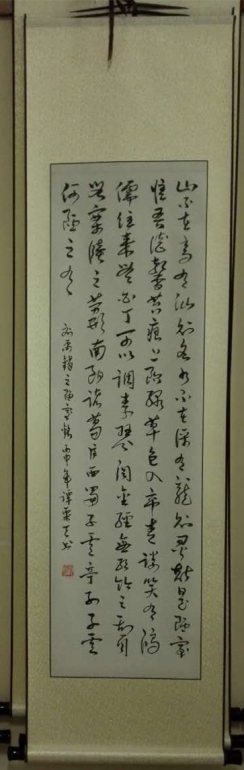 山不在高有仙則名水不在深有龍則靈斯是陋室
惟吾德馨苔痕上階綠草色入帘青談笑有鴻
儒往來無白丁可以調素琴閱金經無絲竹之亂耳
無案牘之勞形南陽諸葛廬西蜀子雲亭孔子云
何陋之有
劉禹錫之陋室銘 丙申年